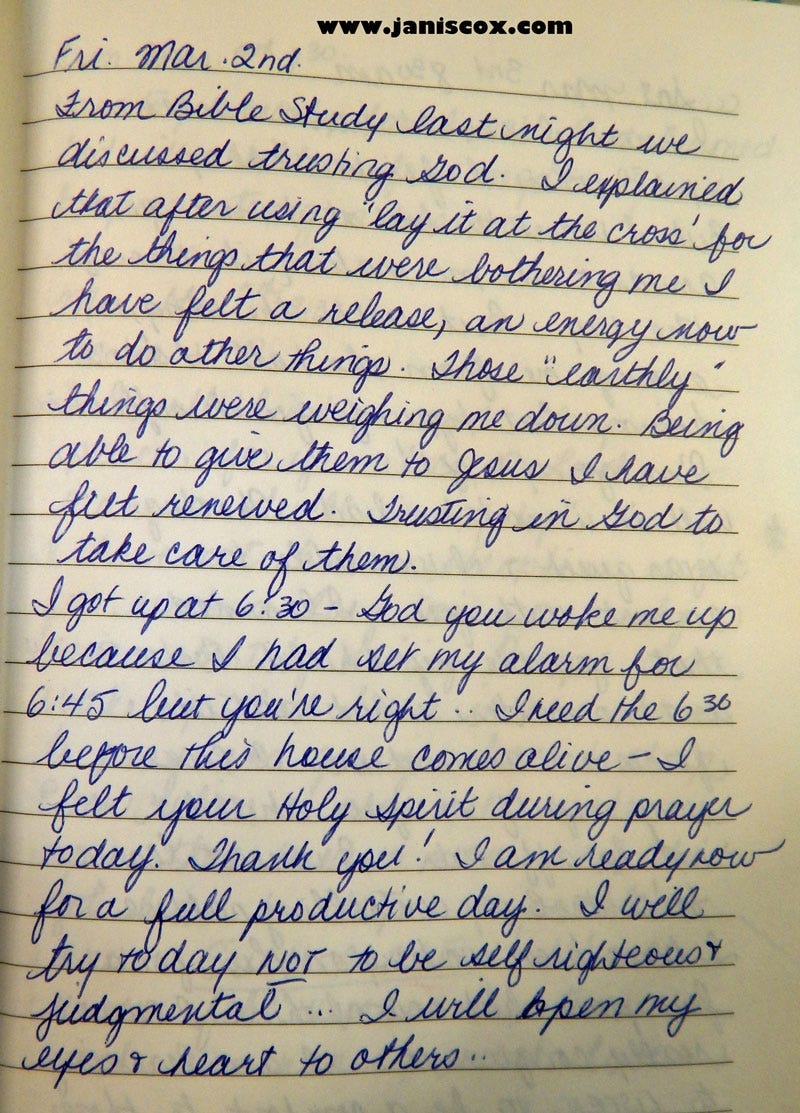 www.janiscox.com
Fri. Mar. 2nd.
From Bible Study last night we
discussed trusting God. I explained
that after using 'lay it at the cross' for
the things that were bothering me I
have felt a release, an energy now
to do other things. Those "earthly"
things were weighing me down. Being
able to give them to Jesus I have
felt renewed. Trusting in God to
take care of them.
I got up at 6:30 - God you woke me up
because I had set my alarm for
6:45 but you're right .. I need the 6 30
before this house comes alive - I
felt your Holy Spirit during prayer
today. Thank you! I am ready now
for a full productive day. I will
try today NOT to be self righteous &
judgmental ... I will open my
eyes & heart to others..